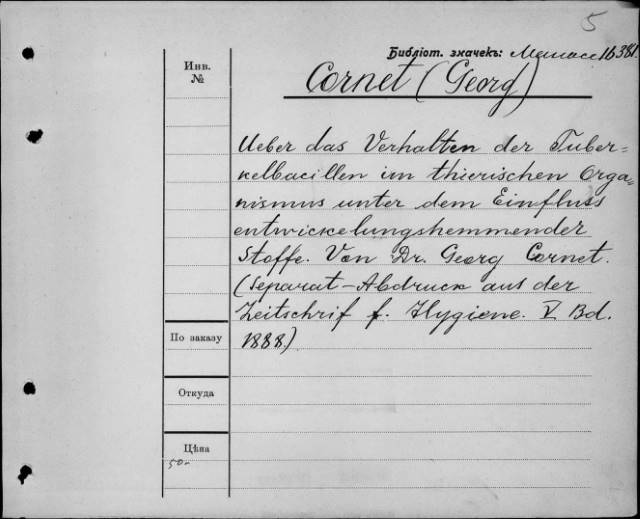 5
Библіот. значекъ: 16381.
Инв.
№
Cornet (Georg)
Ueber das Verhalten der Tuber=
kelbacillen im thierischen Orga=
nismus unter dem Einfluss
entwickelungshemmender
Stoffe. Von Dr. Georg Cornet.
(Separat-Abdruck aus der
Zeitschrif f. Hygiene. V Bd.
1888.)
По заказу
Откуда
Цѣна
50-